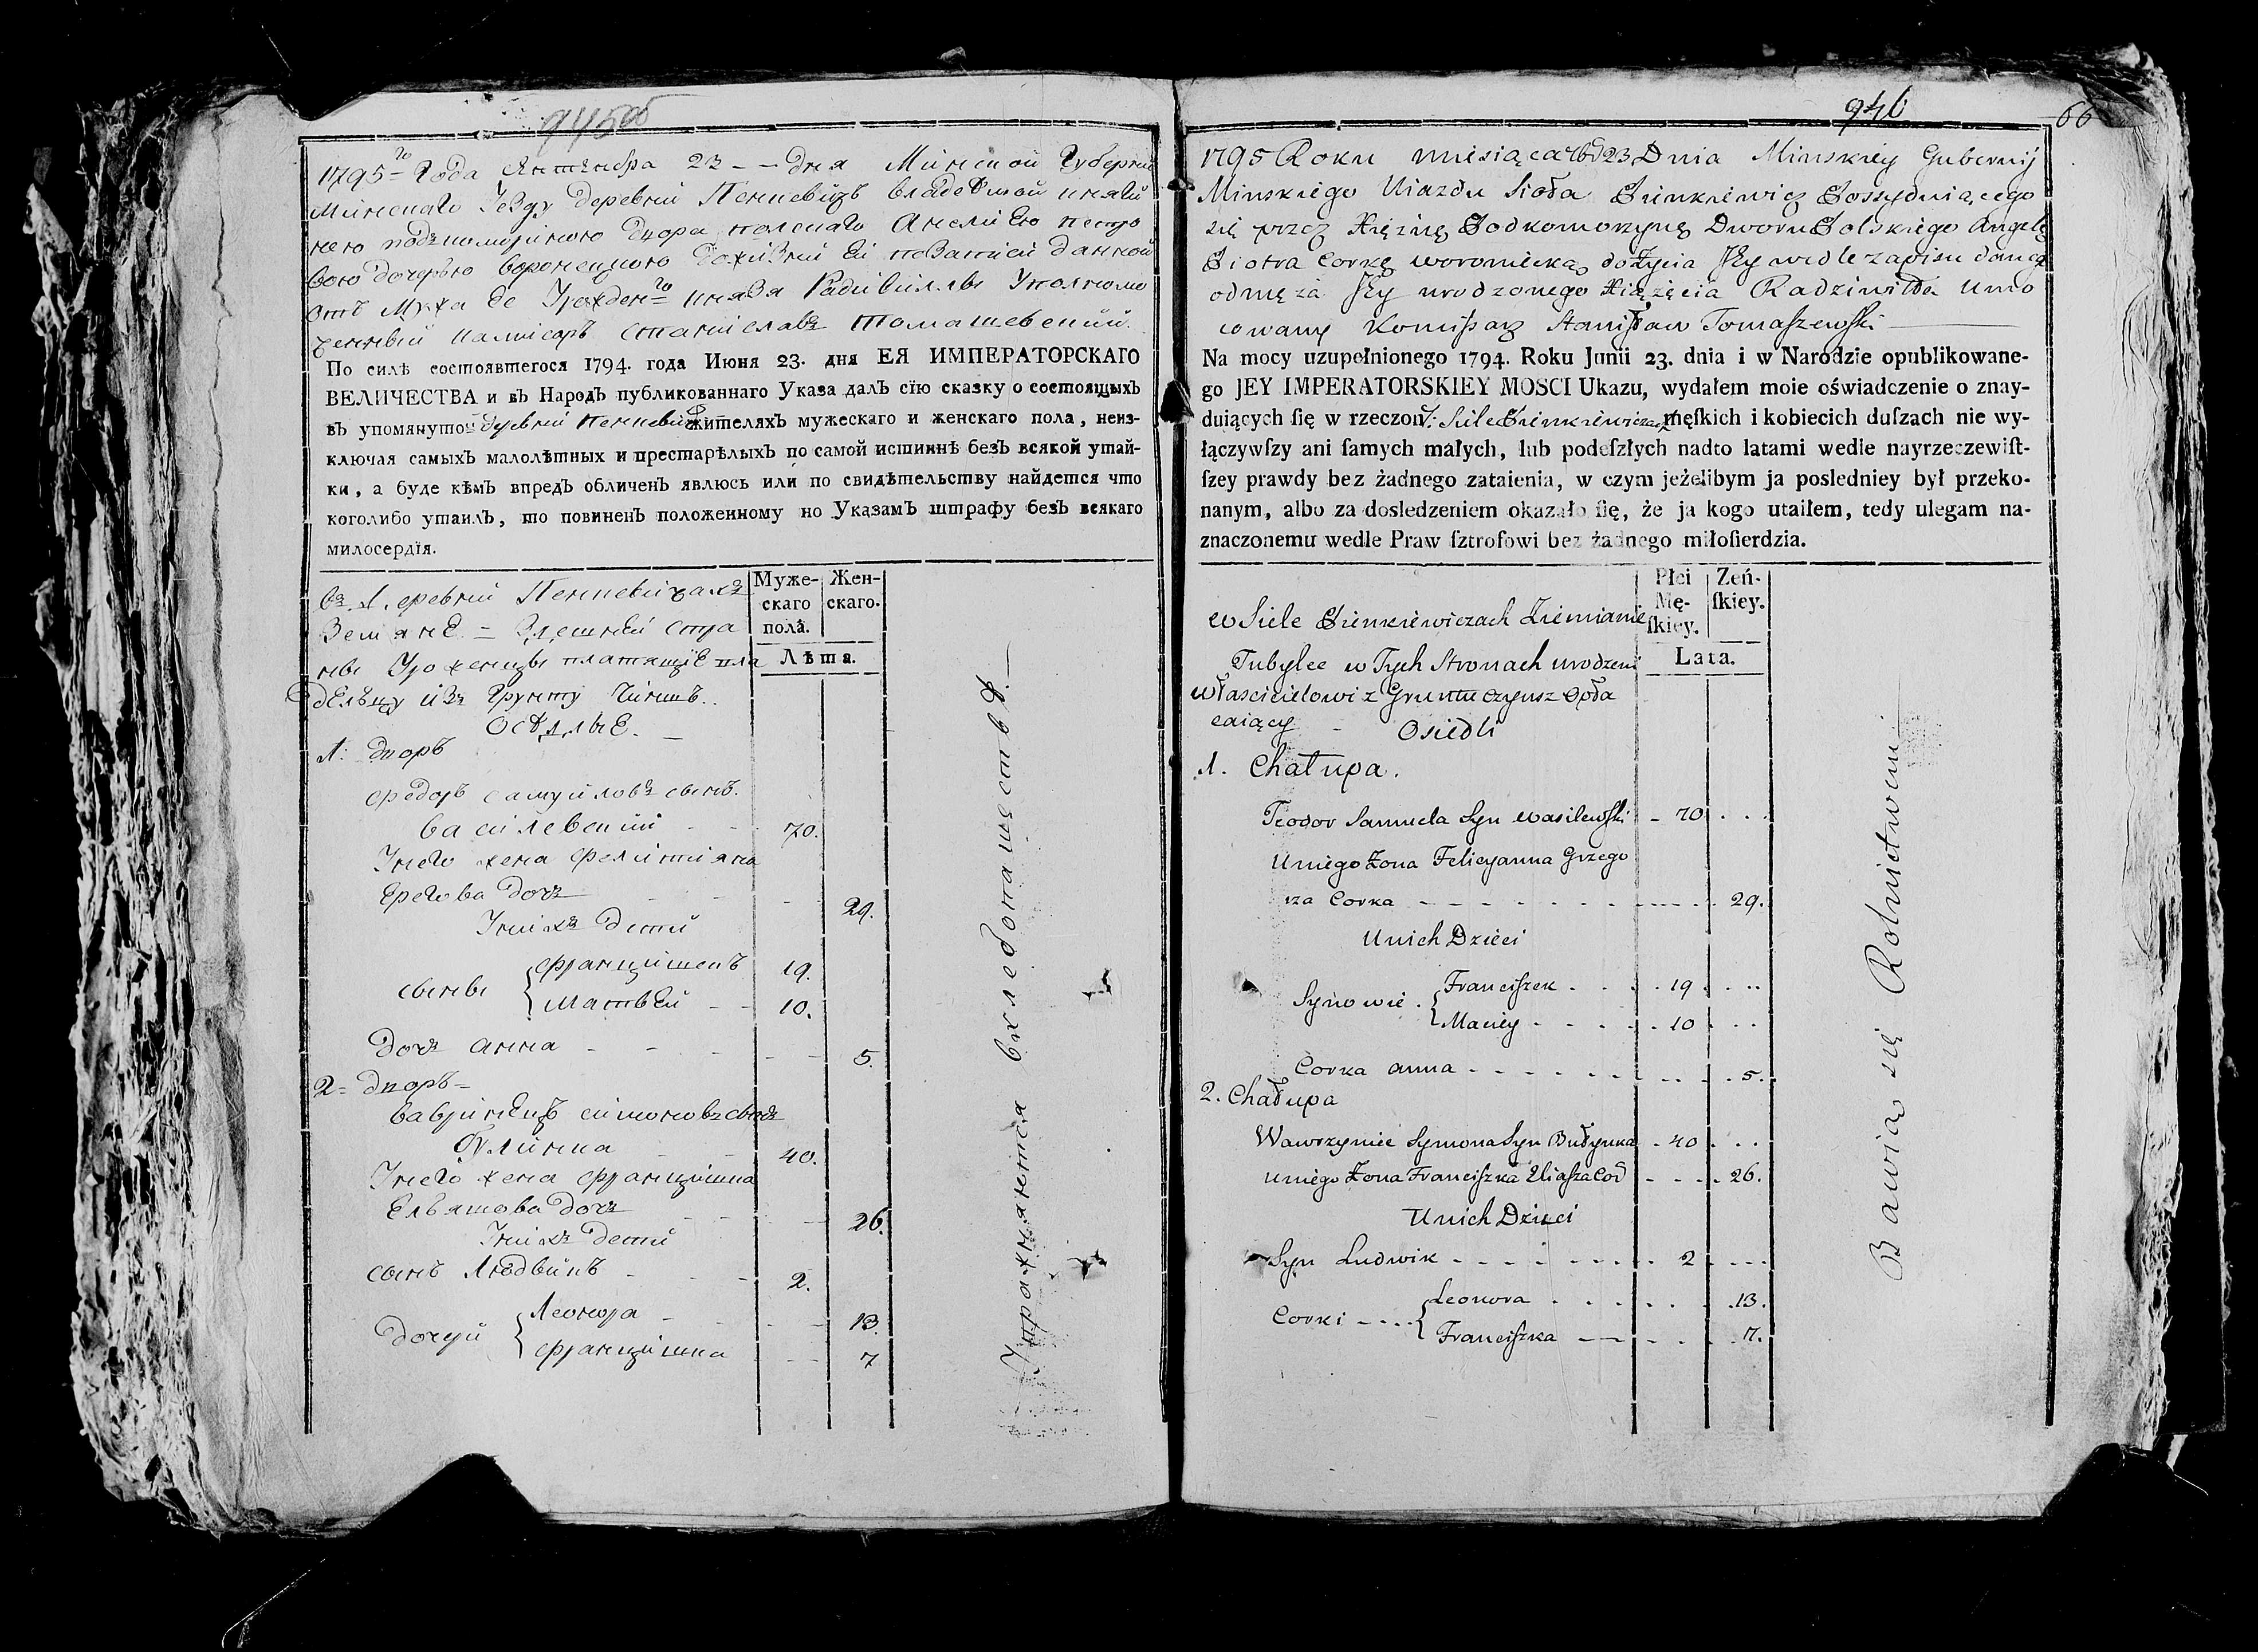 945об
1795 = го Года Сентебра 23 -- дня Минской Губернии
Минскаго Уезду деревни Пенкевичъ владеемой княги
нею подъкоморыною двора полскаго Анелиею петро
вою дочерью воронецкою до живни ей по записи данной
отъ мужа ее Урожден го князя Радивиллы Уполномо
ченный камисаръ Станиславъ Томашевский.
По силѣ состоявшегося 1794. года Июня 23. дня ЕЯ ИМПЕРАТОРСКАГО
ВЕЛИЧЕСТВА и въ Народъ публикованнаго Указа далъ сїю сказку о состоящыхъ
въ упомянутой деревни Пенкевичахъ жителяхъ мужескаго и женскаго пола, неиз-
ключая самыхъ малолѣтных и престарѣлыхъ по самой истиннѣ безъ всякой утай-
ки, а буде кѣмъ впредъ обличенъ явлюсь или по свидѣтельству найдется что
коголибо утаилъ, то повиненъ положенному по Указамъ штрафу безъ всякаго
милосердїя.
Муже- Жен-
скаго скаго.
пола.
Лѣта.
въ Деревни Пенкевичахъ
Земяне = Здешней стра
ны Уроженцы платящие вла
дельцу изъ Грунту Чиншъ..
Осѣдлые. —
1: Дворъ
Федоръ самуиловъ сынъ.
василевский - - 70.
Унего жена Фелитияна
Ерегова дочь - - - 29.
Унихъ дети
сыны { Францишекъ 19.
Матвей - - 10.
дочь анна - - - 5.
2 = дворъ =
вавринецъ симоновъ сынъ
булинка - - 40.
Унего жена Францишка
Ельяшова дочь - - 26.
Унихъ дети
сынъ Людвикъ - - - 2.
дочери { Леонора - - 13.
Францишка - - 7
Упражняются вхлебопашестве.—
946
66
1795 Roku miesiąca 7bra 23 Dnia Minskiey Gubernij
Minskiego Uiazdu Sioła Pienkiewicz Possyduiącego
się przez Xiężnę Podkomorzynę Dworu Polskiego Angelę
Piotra Corkę woroniecką do Życia Jey wedle zapisu danego
od męża Jey urodzonego Xiążęcia Radziwiłła Umo
cowany Komissarz Stanisław Tomaszewski —
Na mocy uzupełnionego 1794. Roku Junii 23. dnia i w Narodzie opublikowane-
go JEY IMPERATORSKIEY MOSCI Ukazu, wydałem moie oświadczenie o znay-
duiących ſię w rzeczon: Siele Pienkiewiczach męſkich i kobiecich duſzach nie wy-
łączywſzy ani ſamych małych, lub podeſzłych nadto latami wedle nayrzeczewiſt-
ſzey prawdy bez żadnego zataienia, w czym jeżelibym ja posledniey był przeko-
nanym, albo za dosledzeniem okazało ſię, że ja kogo utaiłem, tedy ulegam na-
znaczonemu wedle Praw ſztrofowi bez żadnego miłoſierdzia.
Płci Żeń-
Mę- ſkiey.
ſkiey.
Lata.
w Siele Pienkiewiczach Ziemianie
Tubylce w Tych Stronach urodzeni
właścicielowi z Gruntu czynsz opła
caiący - Osiedli
1. Chałupa.
Teodor Samuela Syn wasilewſki - 70 . . .
Uniego Żona Felicyanna Grzego
rza Corka - - - - - - 29.
Unich Dzieci
Synowie . { Franciſzek . . . 19 . ..
Maciey - - - . 10 . ..
Corka anna - - - - - - . 5.
2. Chałupa
Wawrzyniec Symona Syn Bułynka . 40 . ..
uniego Żona Franciſzka Eliaſza Cor - - - . 26.
Unich Dzieci
Syn Ludwik - - - - - - - . 2 . ...
Corki - ... { Leonora . . . . . . 13.
Franciſzka — — . . . . 7.
Bawią się Rolnictwem —